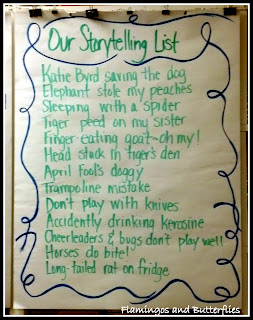 Our Storytelling List
Katie Byrd saving the dog
Elephant stole my peaches
Sleeping with a spider
Tiger peed on my sister
Finger eating goat-oh my!
Head stuck in tiger's den
April Fool's doggy
Trampoline mistake
Don't play with knives
Accidently drinking kerosine
Cheerleaders & bugs don't play well
Horses do bite!
Long-tailed rat on fridge
Flamingos and Butterflies